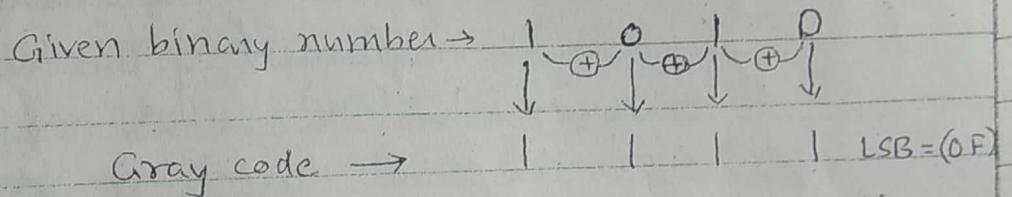 Given binary number → 1 0 1 0
⊕ ⊕ ⊕
↓ ↓ ↓ ↓
Gray code → 1 1 1 1 LSB=(0F)